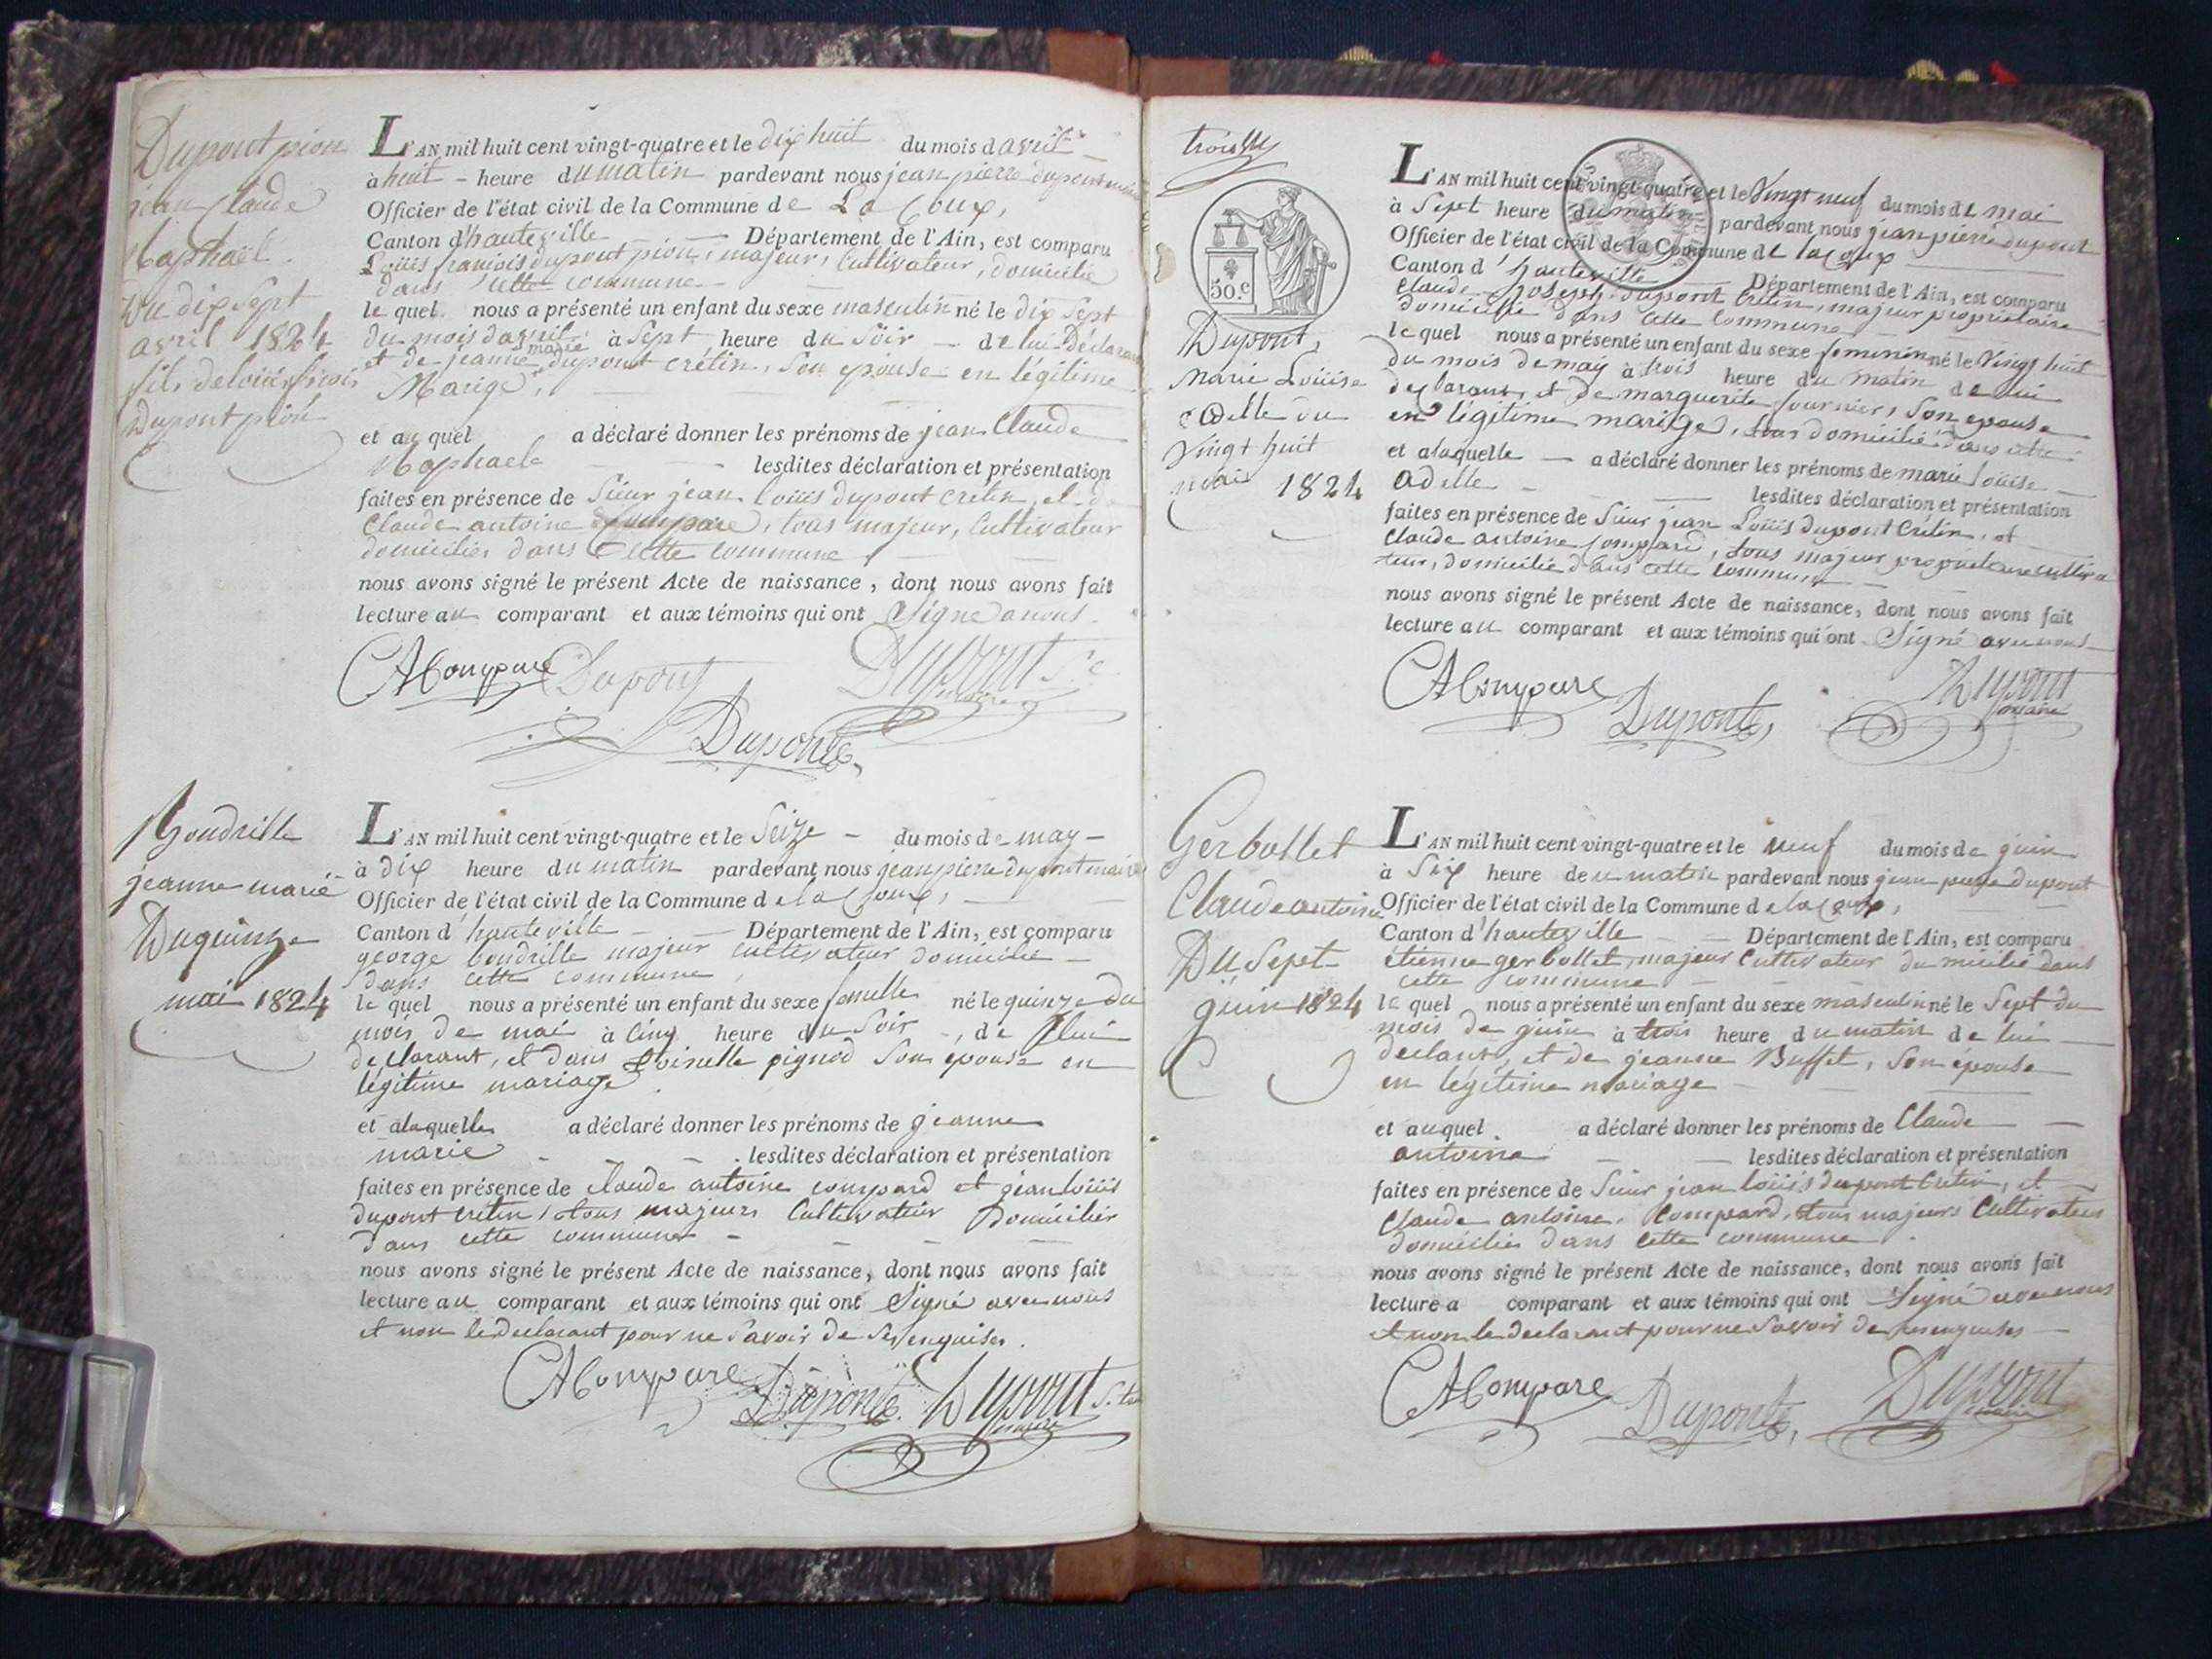 Dupont pion
jean Claude
Raphaël
Du dix Sept
avril 1824
fils de loüis frçois
Dupont pion
L'AN mil huit cent vingt-quatre et le dix huit du mois d avril
à huit heure du matin pardevant nous jean pierre dupont maire
Officier de l'état civil de la Commune de La Coux,
Canton d'hauteville Département de l'Ain, est comparu
Loüis franiois dupont pion, majeur, Cultivateur, domicilie
dans cette commune
le quel nous a présenté un enfant du sexe masculin né le dix Sept
du mois d'avril à Sept heure du Soir de lui Déclarant
et de jeanne marie dupont crétin, Son epouse en légitime
Marige,
et au quel a déclaré donner les prénoms de jean Claude
Raphaele lesdites déclaration et présentation
faites en présence de Sieur jean loüis dupont cretin, et de
Claude antoine Compare, tous majeur, Cultivateur
domicilies dans Cette commune
nous avons signé le présent Acte de naissance, dont nous avons fait
lecture au comparant et aux témoins qui ont Signé a nous.
CA Compare Dupont Dupont
maire
Dupont
Boudrille
jeanne marie
Du quinze
mai 1824
L'AN mil huit cent vingt-quatre et le Seize du mois de may
à dix heure du matin pardevant nous jean pierre dupont maire
Officier de l'état civil de la Commune d e la Coux,
Canton d'hauteville Département de l'Ain, est comparu
george boudrille majeur cultivateur domicilie
dans cette commune
le quel nous a présenté un enfant du sexe femelle né le quinze du
mois de mai à Cinq heure du Soir, de lui
declarant, et dans pignod Son epouse en
légitime mariage
et alaquelle a déclaré donner les prénoms de jeanne
marie lesdites déclaration et présentation
faites en présence de claude antoine compard et jean loüis
dupont cretin, tous majeurs Cultivateur Domicilier
dans cette commune
nous avons signé le présent Acte de naissance, dont nous avons fait
lecture au comparant et aux témoins qui ont Signé avec nous
et non le declarant pour ne Savoir de Ses enquises.
CA Compare Dupont Dupont
maire
trois
50.c
Dupont,
Marie Loüise
adelle du
vingt huit
mai 1824
L'AN mil huit cent vingt-quatre et le Vingt neuf du mois de mai
à Sept heure du matin pardevant nous jean pierre dupont
Officier de l'état civil de la Commune de lacoux
Canton d'hauteville Département de l'Ain, est comparu
Claude Joseph dupont Crétin, majeur propriétaire
domicilié dans cette commune
le quel nous a présenté un enfant du sexe femininn né le Vingt huit
du mois de may à trois heure du matin de lui
declarant, et de marguerite fournier, Son epouse
en légitime mariage, tous domicilié dans cette
et alaquelle a déclaré donner les prénoms de marie loüise
adelle lesdites déclaration et présentation
faites en présence de Sieur jean Loüis dupont Crétin, et
Claude antoine Compard, tous majeur propriétaire cultiva
teur, domicilié dans cette commune
nous avons signé le présent Acte de naissance, dont nous avons fait
lecture au comparant et aux témoins qui ont Signé avec nous
CA Compare Dupont Dupont
maire
Gerbollet
Claude antoine
Du Sept
juin 1824
L'AN mil huit cent vingt-quatre et le neuf du mois de juin
à Six heure deu matin pardevant nous jean pierre dupont
Officier de l'état civil de la Commune d e la Coux,
Canton d'hauteville Département de l'Ain, est comparu
étienne gerbollet, majeur Cultivateur domicilié dans
cette commune
le quel nous a présenté un enfant du sexe masculin né le Sept du
mois de juin à trois heure du matin de lui
declant, et de jeanne Buffet, Son épouse
en légitime mariage
et auquel a déclaré donner les prénoms de Claude
antoine lesdites déclaration et présentation
faites en présence de Sieur jean loüis dupont Cretin, et
Claude antoine Compard, tous majeurs Cultivateur
domicilies dans Cette commune
nous avons signé le présent Acte de naissance, dont nous avons fait
lecture a comparant et aux témoins qui ont Signé avec nous
et non le declarant pour ne Savoir de enquises
CA Compare Dupont Dupont
maire